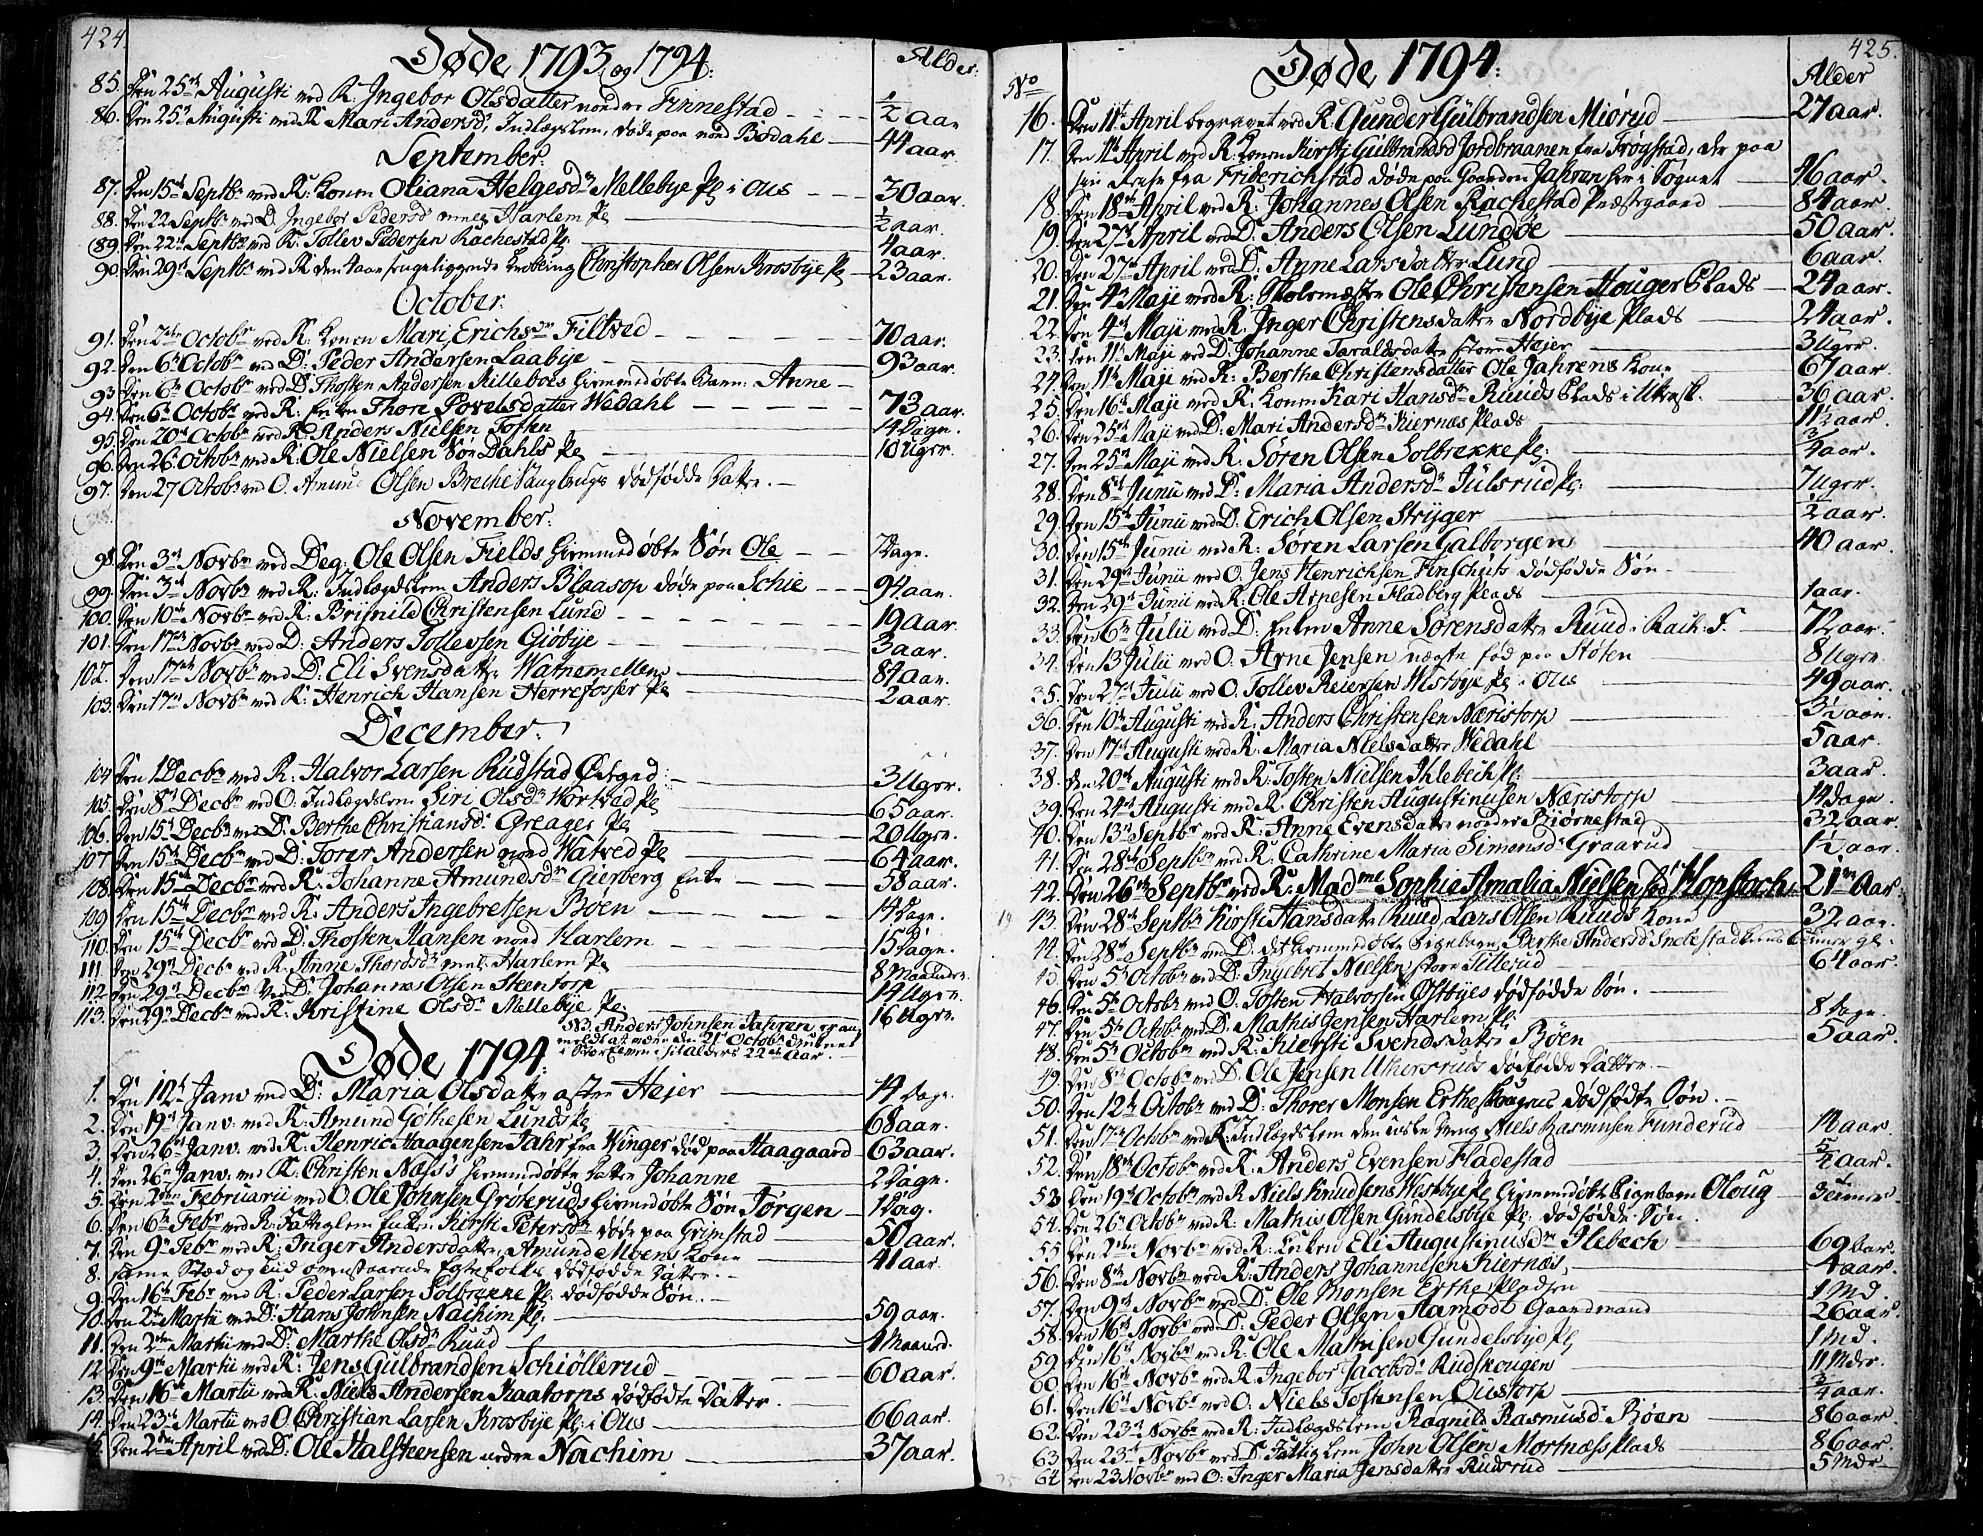 424
Døde 1793 og 1794:
Alder:
85. Den 25de Augusti med R. Ingebor Olsdatter nordre Finnestad - 1/2 Aar
86. Den 25de Augusti med R. Mari Andersd: Indlægslem, døde paa nord Bodahl - 44 aar.
September:
87. Den 15de Septbr med R: Konen Oliana Helgesdr Mellebye Pl i Ous - 30 aar.
88. Den 22 Septbr med D. Ingebor Pedersd Harlem Pl - 1/2 aar.
89. Den 22de Septbr med R: Tollev Pedersen Rachestad Pl: - 4 aar.
90. Den 29de Septbr med R den 4 aar Christopher Olsen Krosbye Pl - 23 aar.
October:
91. Den 2den Octobr med R: Konen Mari Erichsdr Filtved - 70 aar.
92. Den 6te Octobr med D: Peder Andersen Laabye - 93 aar.
93 Den 6te Octobr med D Thosten Andersen Killeboes hiemmedøbte Barn: Anne -
94. Den 6te Octobr med R: Enken Thore Povelsdatter Wedahl - 73 aar.
95. Den 20de Octobr med R: Anders Nielsen Tosten - 14 Dage.
96. Den 26. Octobr med R: Ole Nielsen Sør Dahls Pl - 10 Uger.
97. Den 27 Octobr med O. Amund Olsen Breche Saugbrugs dødfødde Datter. -
November:
98. Den 3de Novbr med Deg: Ole Olsen Fields hiemmedøbte Søn Ole - 7 Dage.
99. Den 3de Novbr med R: Indlægslem Anders Blaasop døde paa Schie - 94 aar.
100. Den 10de Novbr med R: Brisnild Christensen Lund - 19 aar.
101. Den 17de Novbr med D: Anders Tollevsen Giøbye - 3 aar.
102. Den 17de Novbr med D: Eli Svensdatter Watnemellem - 84 aar.
103. Den 17de Novbr med R: Henrich Hansen Herrefosser Pl - 2 aar.
December:
104 Den 1 Decbr med R: Halvor Larsen Rudstad Østgrd: - 3 Uger.
105. Den 8de Decbr med O. Indlægslem Siri Olsdr Wortved Pl - 65 aar.
106. Den 15de Decbr med D: Berthe Christiansd: Greager Pl - 20 Uger.
107 Den 15de Decbr med D: Torer Andersen nord Watved Pl - 64 aar.
108. Den 15de Decbr med R: Johanne Amundsdr Gierberg Enke - 58 aar.
109 Den 15de Decbr med R: Anders Ingebretsen Bøen - 14 Dage.
110. Den 15de Decbr med D: Thosten Hansen nord Harlem - 15 Dage.
111. Den 29de Decbr med R: Anne Thordsdr mel: Harlem Pl - 8 Maaneder.
112 Den 29de Decbr med D: Johannes Olsen Steentorp - 14 Uger.
113. Den 29de Decbr med R: Kristine Olsdr Mellebye Pl: - 16 Uger.
NB. Anders Johnsen Jahren er an-
meldt at være den 21 Octobr druknet
i Storelven i sit alders 22de Aar.
Døde 1794:
1. Den 12te Janv med D: Maria Olsdatter østre Hejer - 14 Dage.
2. Den 19de Janv: med R: Amund Gøthesen Lunds Pl - 68 aar.
3. Den 26de Janv. med R: Henric Haagensen Jahr fra Winger død paa Haagaard - 63 aar.
4. Den 26de Janv: med R: Christen Næss's hiemmedøbte Datter Johanne - 2 Dage.
5. Den 2den Februarii med O. Ole Johnsen Grøteruds hiemmedøbte Søn Jørgen - 1 Dag.
6. Den 6te Febr med R: Fattiglem Enken Kirsti Petersdr døde paa Grimstad - 50 aar.
7. Den 9de Febr med R: Inger Andersdatter, Amund Moens Kone - 41 aar.
8. samme Stæd og tiid ovenstaaende Egtefolks dødfødde Datter. -
9. Den 16de Febr med R: Peder Larsen Solbrekke Pl: dødfødde Søn. -
10. Den 2den Martii med D: Hans Johnsen Nachim Pl: - 59 aar.
11. Den 2den Martii med D: Marthe Olsdr Ruud - 1 Maaned.
12 Den 9de Martii med R: Jens Gulbrandsen Schiøllerud - 60 aar.
13. Den 16de Martii med R: Niels Andersen Kaatorps dødfødte Datter.
14. Den 23de Martii med O Christian Larsen Krosbye Pl: i Ous - 66 aar.
15. Den 2den April med D: Ole Halsteensen nedre Nachim - 37 aar.
425.
Døde 1794:
No
Alder
16. Den 11te April begravet med R: Gunder Gulbrandsen Miørud - 27 aar.
17. Den 11te April med R: Konen Kirsti Gulbrandsd Jordbraanen fra Trøgstad, der paa
sin Reise fra Friderichstad døde paa Gaarden Jahren her i Sognet - 46 aar.
18. Den 18de April med R: Johannes Olsen Rachestad Præstegaard - 84 aar.
19. Den 27de April med D: Anders Olsen Lundøe - 50 aar.
20. Den 27de April med D: Anne Larsdatter Lund - 6 aar.
21. Den 4de Maji med R: Skolemæster Ole Christensen Houger Plads - 24 aar.
22. Den 4de Maji med R: Inger Christensdatter Nordbye Plads - 24 aar.
23. Den 11te Maji med D: Johanne Taraldsdatter store Hejer - 3 Uger.
24. Den 11te Maji med R: Berthe Christensdatter Ole Jahrens Kone - 67 aar.
25. Den 16de Maji med R: Konen Kari Hansdr Ruuds Plads i Utkast. - 36 aar.
26. Den 25de Maji med D: Mari Andersdr Kiernæs Plads - 1 1/2 aar.
27. Den 25de Maji med R: Søren Olsen Solbrekke Pl: - 3/4 aar.
28. Den 8de Junii med D: Maria Andersdr Julsrud Pl: - 7 Uger.
29. Den 15de Junii med D: Erich Olsen Stryger - 1/2 aar.
30. Den 15de Junii med R: Søren Larsen Galborgen - 40 aar.
31. Den 29de Junii med O. Jens Henrichsen Finschuts dødfødde Søn -
32. Den 29de Junii med R: Ole Arnesen Fladberg Plads - 1 aar.
33. Den 6te Julii med D: Enken Anne Sørensdatter Ruud i Rach: F. - 72 aar.
34. Den 13 Julii med O. Arne Jensen uægte, fød paa Støten - 8 Uger.
35. Den 27de Julii med O. Tollev Reiersen Westbye Pl i Ous - 49 aar.
36. Den 10de Augusti med R: Anders Christensen Næristorp - 3 1/2 aar.
37. Den 17de Augusti med R: Maria Nielsdatter Wedahl - 5 aar.
38. Den 20de Augusti med R: Tosten Nielsen Ihlebech Pl: - 3 aar.
39. Den 24de Augusti med R: Christen Augustinusen Næristorp - 14 Dage.
40. Den 13de Septbr med R: Anne Evensdatter nordre Biørnestad - 32 aar.
41. Den 28de Septbr med R: Cathrine Maria Simonsdr Graarud - 1 1/2 aar.
42. Den 26de Septbr med R: Madme Sophie Amalia Nielsen fød Kopstach - 21 Aar
43. Den 28de Septbr Kirsti Hansdatter Ruud, Lars Olsen Ruuds Kone - 32 aar.
44. Den 28de Septbr med D. det hiemmedøbte Pigebarn Berthe Andersd:
45 Den 5te Octobr med D: Ingebret Nielsen store Tillerud - 64 aar.
46. Den 5te Octobr med O: Tosten Halvorsen Østbyes dødfødde Søn. -
47. Den 5te Octobr med D: Mathis Jensen Harlem Pl: - 8 Dage.
48. Den 5te Octobr med R: Kiersti Svendsdatter Bøen - 5 aar.
49. Den 8de Octobr med D: Ole Jensen Uthersruds dødfødde Datter. -
50. Den 12te Octobr med D: Thorer Monsen Ertheskougnes dødfødte Søn. -
51. Den 17de Octobr med R: Indlægslem Niels Rasmusen Funderud - aar.
52. Den 18de Octobr med R: Anders Evensen Fladestad - 5/4 aar.
53 Den 19de Octobr med R Niels Knudsens Westbye Pl hiemmedøbte Pigebarn Oloug - 3 timer
54. Den 26de Octobr med R: Mathis Olsen Gundelsbye Pl: dødfødde Søn.
55 Den 2den Novbr med R: Enken Eli Augustinusdr Ilebech - 69 aar.
56. Den 8de Novbr med R: Anders Johannesen Kiernæs, - 1 aar.
57. Den 9de Novbr med D: Ole Monsen Erthe Pladsen - 1 Md.
58. Den 16de Novbr med D: Peder Olsen Hamodt Gaardmand - 26 aar.
59 Den 16de Novbr med R: Ole Mathisen Gundelsbye Pl - 1 Md.
60 Den 16de Novbr med R: Ingebor Jacobsdr Rudskougen - 11 Mder.
61. Den 16de Novbr med O. Niels Tostensen Oustorp - 3/4 aar.
62. Den 23de Novbr med R: Indlægslem Ragnild Rasmusdr Bøen - 86 aar.
63 Den 23de Novbr med D: Fattiglem John Olsen Mortnæss Plads - 86 aar.
64 Den 23 Novbr med O: Inger Maria Jensdatter Rudsrud - 5 Mder